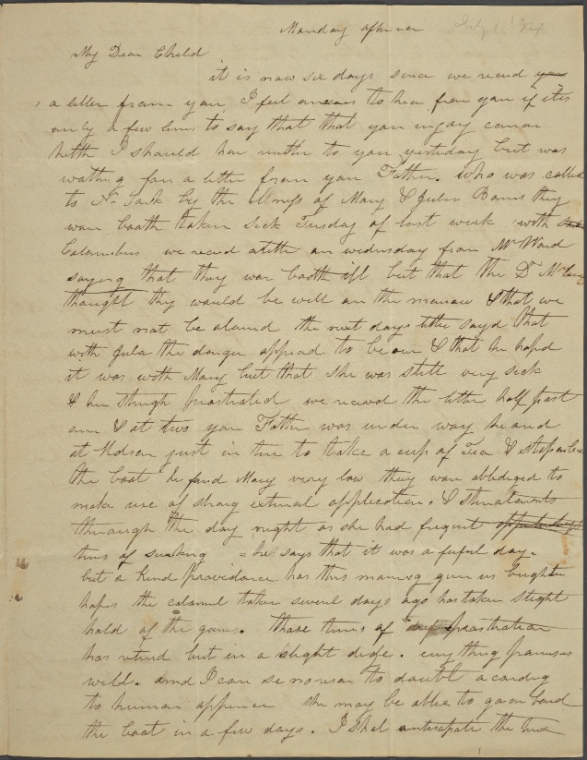 Monday afternoon
My Dear Child
it is now six days since we recevd
a letter from you I feel anxious to hear from you if it is
only a few lines to say that that you injoy common
helth I should have written to you yesterday but was
wating for a letter from your Father. who was called
to N. York by the illness of Mary & Julia they
ware boath taken sick Tuesday of last week with
we recevd a letter on wednesday from Mr Ward
saying that they war boath ill but that the Dr
thought they would be well on the morrow & that we
must not be alarmd the next days letter sayd that
with Julia the danger appeard to be over & that he hoped
it was with Mary but that she was still very sick
& her strength prostrated we recevd the letter half past
one & at two your Father was under way he and
at Hudson just in time to take a cup of Tea & step
the boat he found Mary very low they ware abledged to
make use of strong external application. & stimulants
through the day night as she had frequent
turns of sinking = he says that it was a fearful day.
but a Kind Providance has this morning given us brighter
hopes the calomel taken several days ago has taken slight
hold of the gums. those turns of prostration
has returnd but in a slight degre. everything promises
well. and I can se no reason to doubt acording
to human she may be able to go on board
the boat in a few days. I shal anticipate the